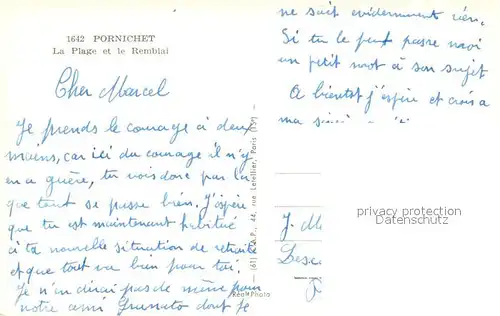 1642 PORNICHET
La Plage et le Remblai
Cher Marcel
Je prends le courage à deux
mains, car ici du courage il n'y
en a guère, tu vois donc par là
que tout se passe bien. J'espère
que tu est maintenant habitué
à ta nouvelle situation de retraite
et que tout va bien pour toi.
Je n'en dirai pas de même pour
notre ami dont je
ne sait evidemment rien.
Si tu le peux passe moi
un petit mot à son sujet
A bientot j'espère et crois a
ma
44, rue Letellier, Paris (15e)
Real Photo
J.
privacy protection
Datenschutz